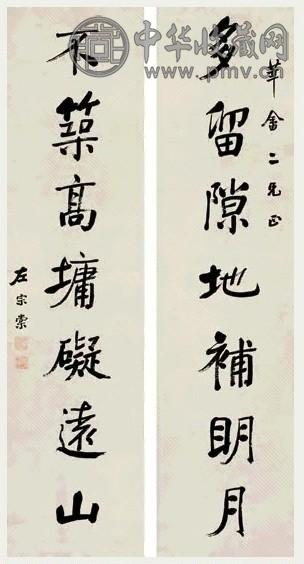 中华收藏网
www.pmv.cn
多留隙地補明月
華 二兄正
不築高墉礙遠山
左宗棠